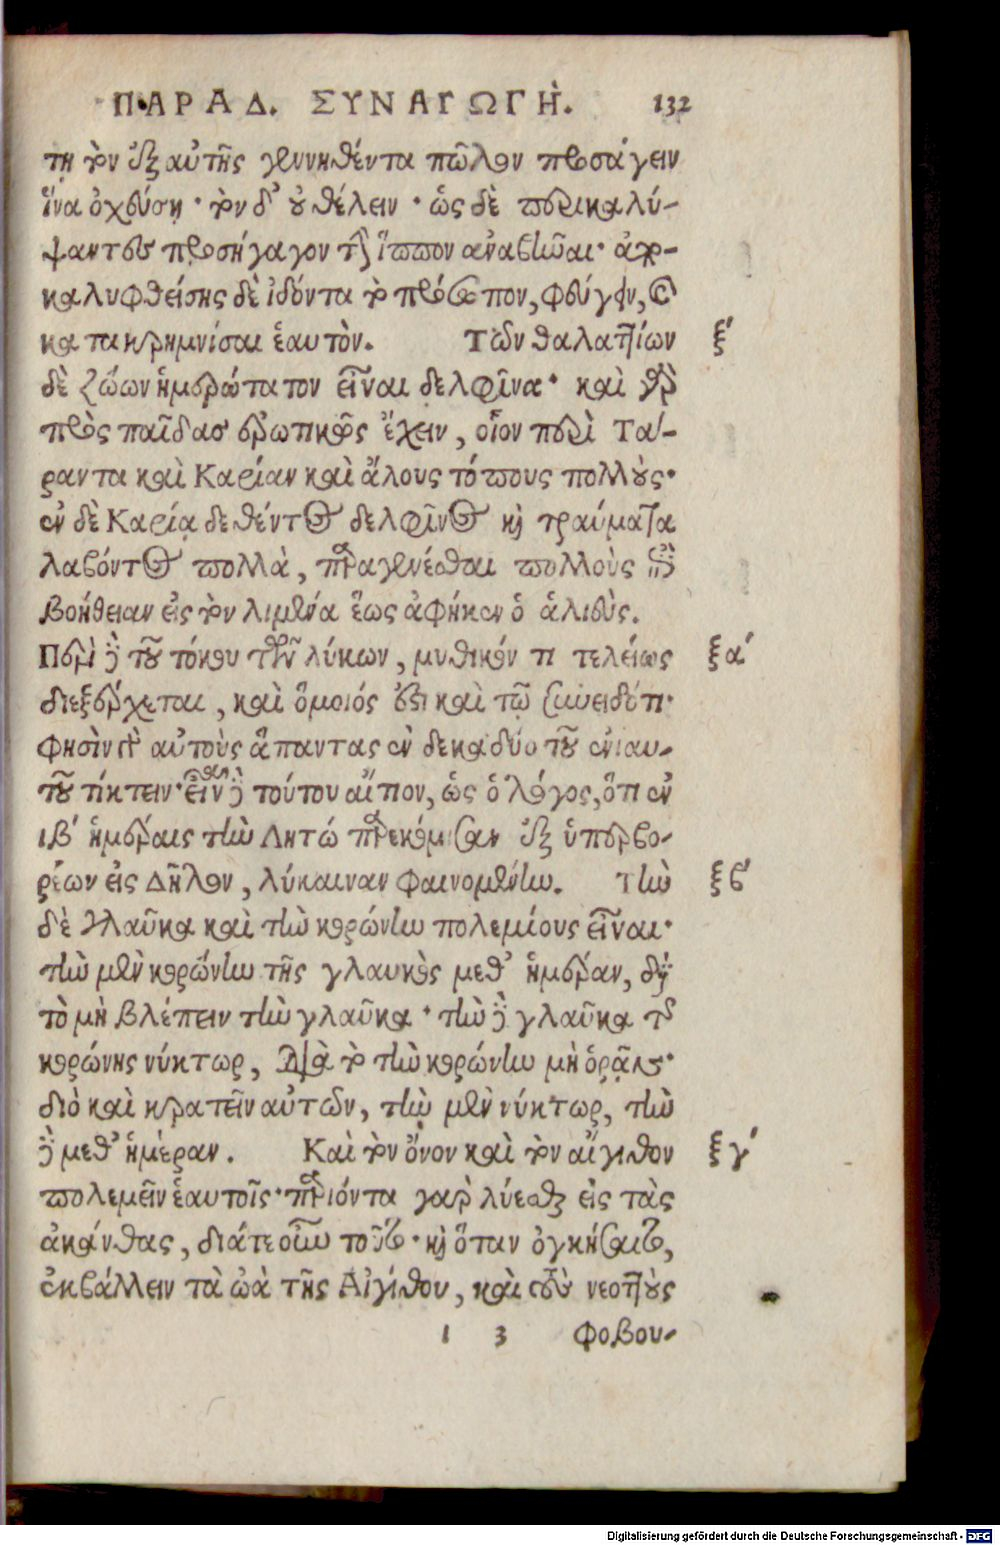 ΠΑΡΑΔ. ΣΥΝΑΓΩΓῊ. 132
τῃ τὸν ἐξ αὐτῆς γεννηθέντα πῶλον προσάγειν
ἵνα ὀχεύσῃ· τὸν δ’ οὐ θέλειν· ὡς δὲ περικαλύ-
ψαντες προσήγαγον τὴν ἵππον ἀναβιῶαι· ἀπο-
καλυφθείσης δὲ ἰδόντα τὸ πρόσωπον, φεύγειν, καὶ
κατακρημνίσαι ἑαυτὸν. Τῶν θαλαττίων ξ´
δὲ ζώων ἡμερώτατον εἶναι δελφῖνα· καὶ γὰρ
πρὸς παῖδας ἐρωτικῶς ἔχειν, οἷον περὶ Τά-
ραντα καὶ Καρίαν καὶ ἄλους τόπους πολλούς·
ἐν δὲ Καρίᾳ δεθέντος δελφῖνος καὶ τραύματα
λαβόντος πολλὰ, παραγενέσθαι πολλοὺς ἐπὶ
βοήθειαν εἰς τὸν λιμένα ἕως ἀφῆκεν ὁ ἁλιεὺς.
Περὶ δὲ τοῦ τόκου τῶν λύκων, μυθικόν τι τελείως ξα´
διεξέρχεται, καὶ ὅμοιός ἐστι καὶ τῷ συνειδότι·
φησὶν γὰρ αὐτοὺς ἅπαντας ἐν δεκαδύο τοῦ ἐνιαυ-
τοῦ τίκτειν· εἶναι δὲ τούτου αἴτιον, ὡς ὁ λόγος, ὅτι ἐν
ιβ´ ἡμέραις τὴν Λητώ παρεκόμισαν ἐξ ὑπερβο-
ρέων εἰς Δῆλον, λύκαιναν φαινομένην. Τὴν ξβ´
δὲ γλαῦκα καὶ τὴν κορώνην πολεμίους εἶναι·
τὴν μὲν κορώνην τῆς γλαυκὸς μεθ’ ἡμέραν, διὰ
τὸ μὴ βλέπειν τὴν γλαῦκα· τὴν δὲ γλαῦκα τῆς
κορώνης νύκτωρ, διὰ τὸ τὴν κορώνην μὴ ὁρᾷν·
διὸ καὶ κρατεῖν αὐτῶν, τὴν μὲν νύκτωρ, τὴν
δὲ μεθ’ ἡμέραν. Καὶ τὸν ὄνον καὶ τὸν αἴγιθον ξγ´
πολεμεῖν ἑαυτοῖς· παριόντα γὰρ λύεσθαι εἰς τὰς
ἀκάνθας, διάτε οὖν τοῦτο· καὶ ὅταν ὀγκήσαιτο,
ἐκβάλλειν τὰ ὠὰ τῆς Αἰγίθου, καὶ τοὺς νεοττοὺς
1 3 φοβου-
Digitalisierung gefördert durch die Deutsche Forschungsgemeinschaft - DFG